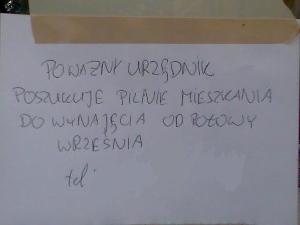 POWAŻNY URZĘDNIK
POSZUKUJE PILNIE MIESZKANIA
DO WYNAJĘCIA OD POŁOWY
WRZEŚNIA
tel.